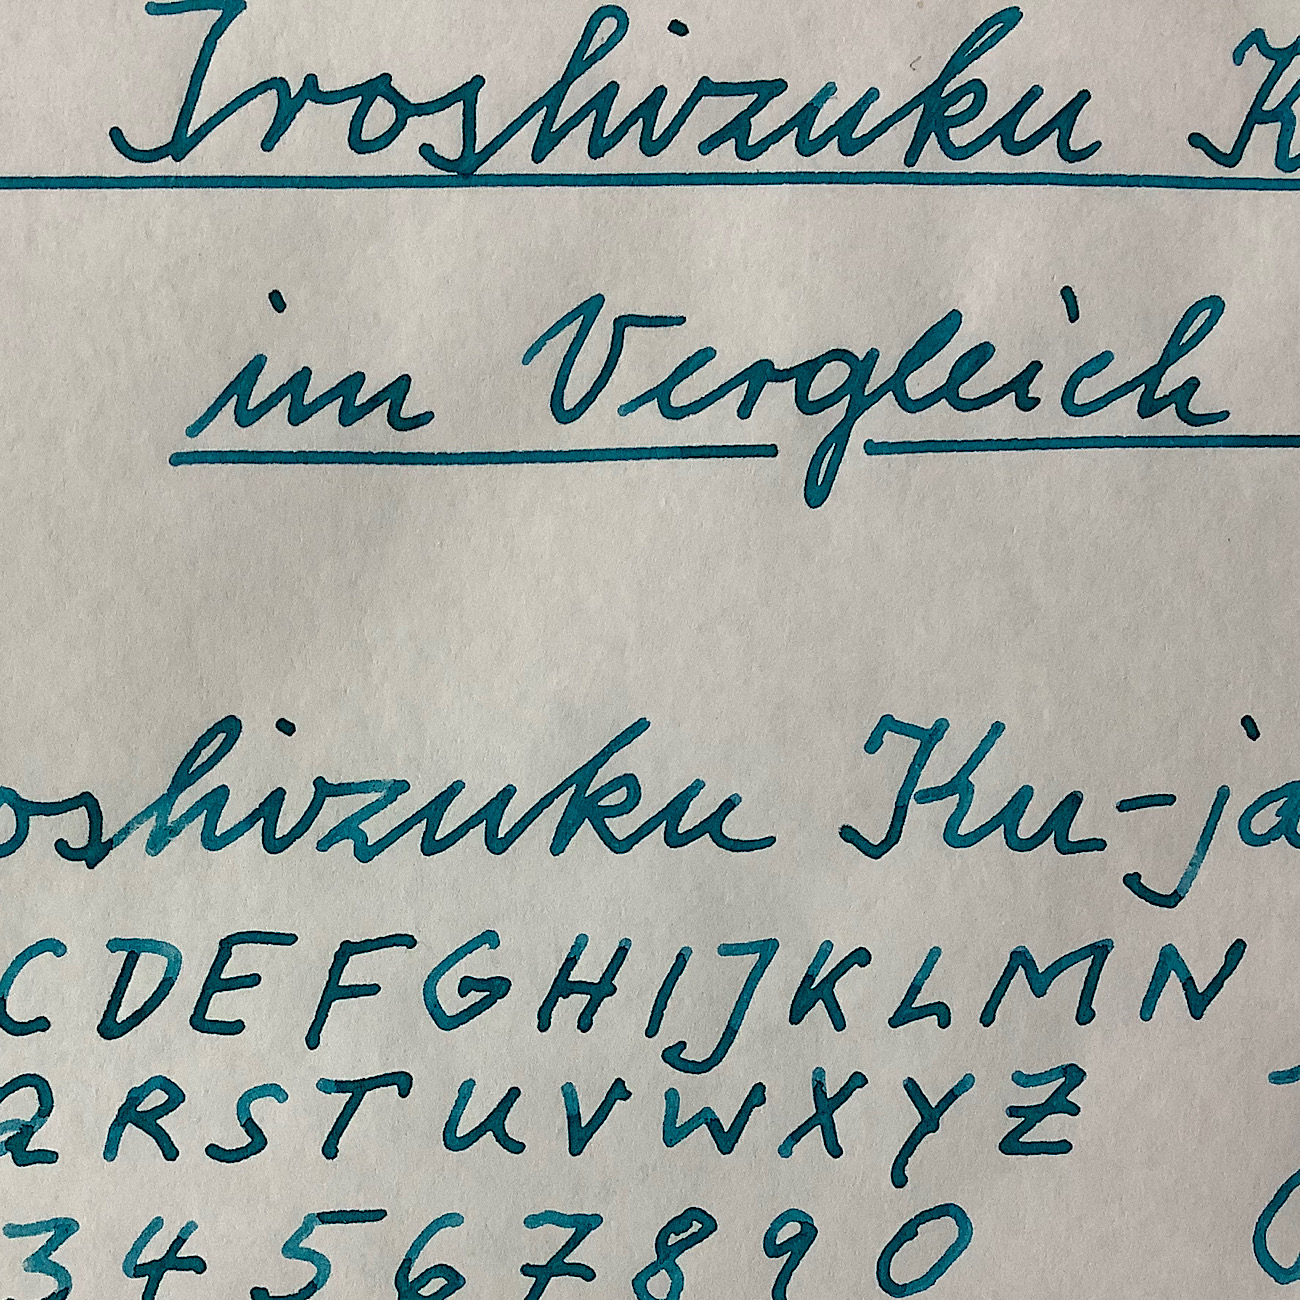 Iroshizuku K
im Vergleich
oshizuku Ku-ja
C D E F G H I J K L M N
Q R S T U V W X Y Z
3 4 5 6 7 8 9 0